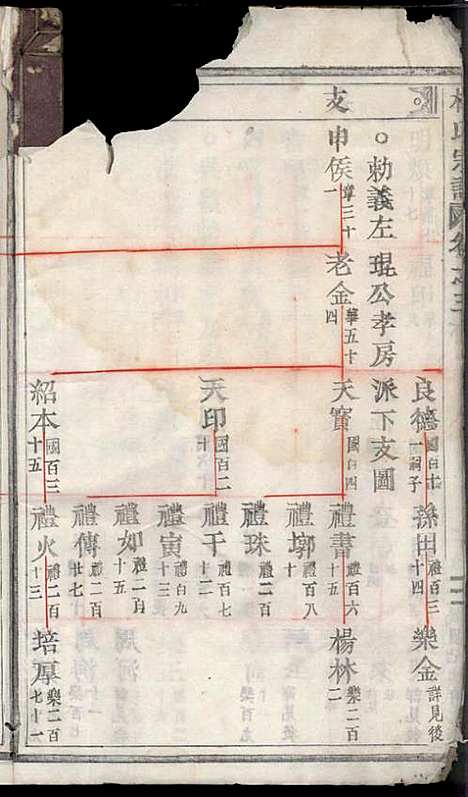 氏宗譜圖卷之三
支
○勅義左琨公孝房派下支圖
申侯
章三十一
老金
華五十四
良德
一祠子
孫田
禮百三十四
樂金
詳見後
天寶
國百四
禮書
禮百六十五
楊林
樂二百二
禮墎
禮百八十
禮珠
禮二百
天印
國百二十
禮干
禮百七十二
禮寅
禮百九十三
禮如
禮二百十五
禮傳
禮二百廿七
紹本
國百三十五
禮火
禮二百十三
培厚
樂二百七十一